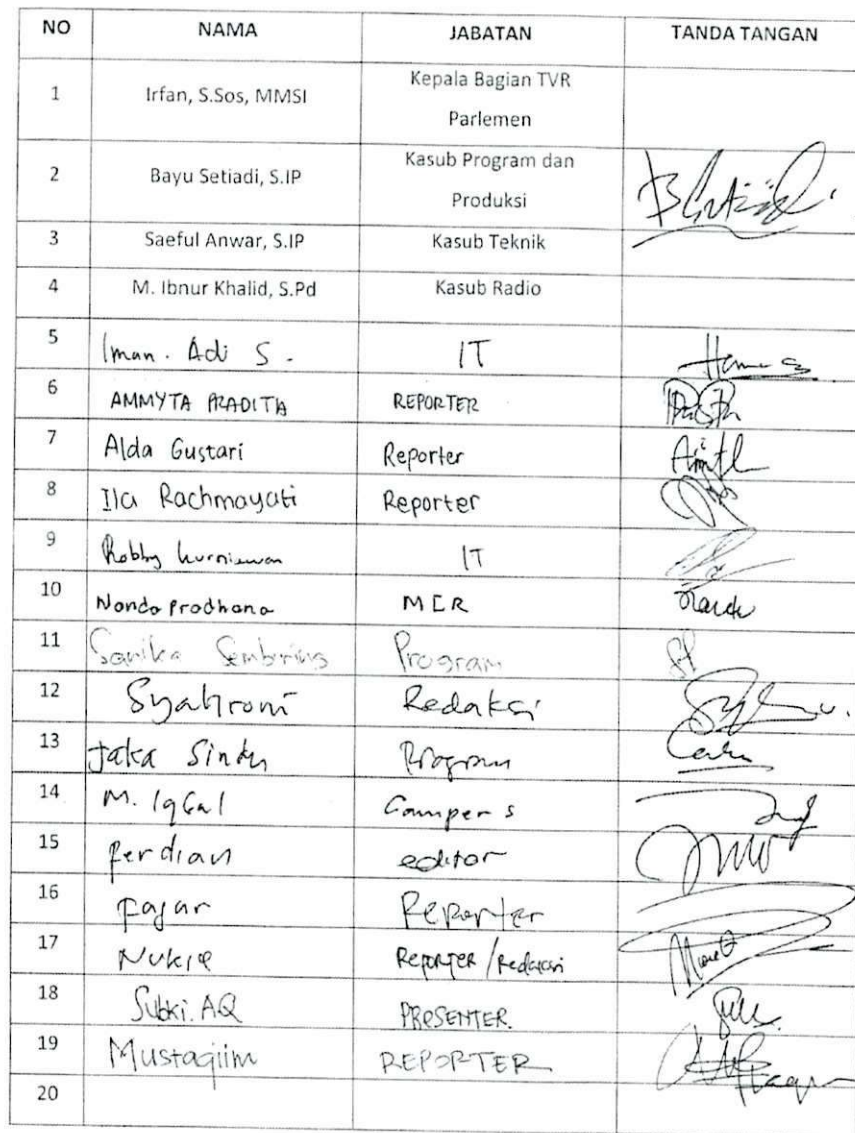 NO NAMA JABATAN TANDA TANGAN
1 Irfan, S.Sos, MMSI Kepala Bagian TVR
Parlemen
2 Bayu Setiadi, S.IP Kasub Program dan
Produksi
3 Saeful Anwar, S.IP Kasub Teknik
4 M. Ibnur Khalid, S.Pd Kasub Radio
5 Iman. Adi S. IT
6 AMMYTA PRADITA REPORTER
7 Alda Gustari Reporter
8 Ila Rachmayati Reporter
9 Robby Kurniawan IT
10 Nanda Pradhana MCR
11 Sanika Sembiring Program
12 Syahroni Redaksi
13 Jaka Sindu Program
14 M. Iqbal Campers
15 Ferdian editor
16 Fajar Reporter
17 Nukie Reporter/Redaksi
18 Subki. AQ PRESENTER.
19 Mustaqiim REPORTER
20